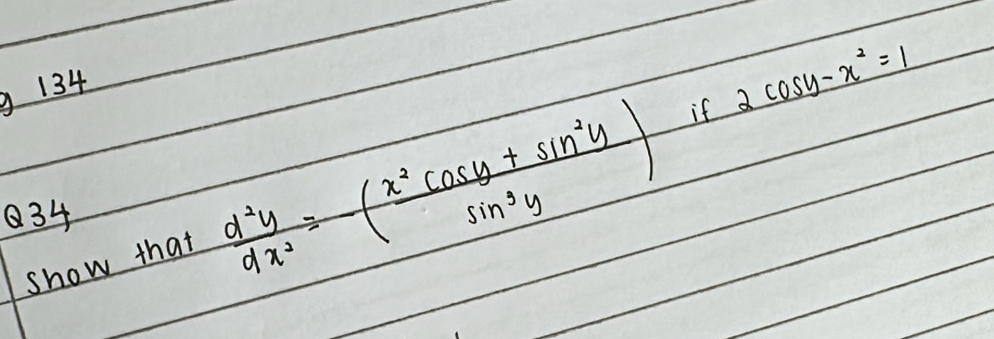 g 134
Q34
show that d²y/dx² = -(x² cosy + sin²y / sin³y) if 2 cosy - x² = 1